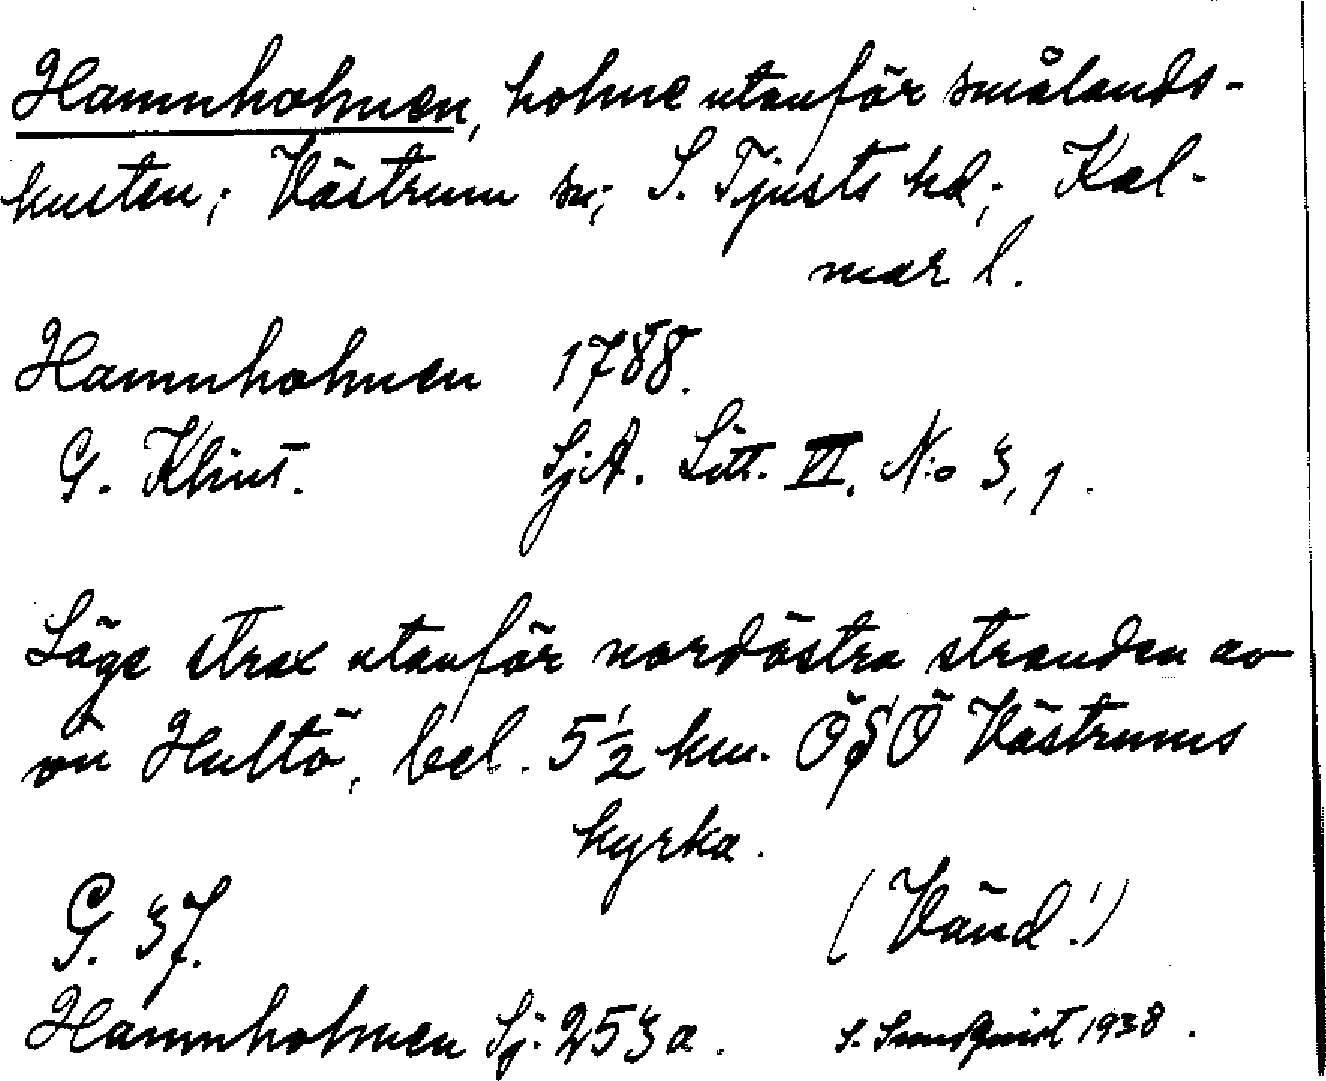 Hamnholmen, holme utanför smålands-
kusten; Västrum sn; S. Tjusts hd; Kal-
mar l.
Hamnholmen 1788.
G. Klint. Sj.A. Litt. VI. N:o 3, 1.
Läge strax utanför nordöstra stranden av
ön Hultö, bel. 5½ km. ÖSÖ Västrums
kyrka.
G. 37. (Vänd!)
Hamnholmen Sj. 253a. S. Sundquist 1938.